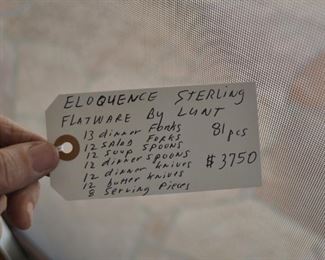 ELOQUENCE STERLING
FLATWARE BY LUNT
13 dinner Forks
12 SALAD FORKS
12 SOUP SPOONS
12 dinner SPOONS
12 dinner knives
12 butter knives
8 Serving Pieces
81 pcs
$3750